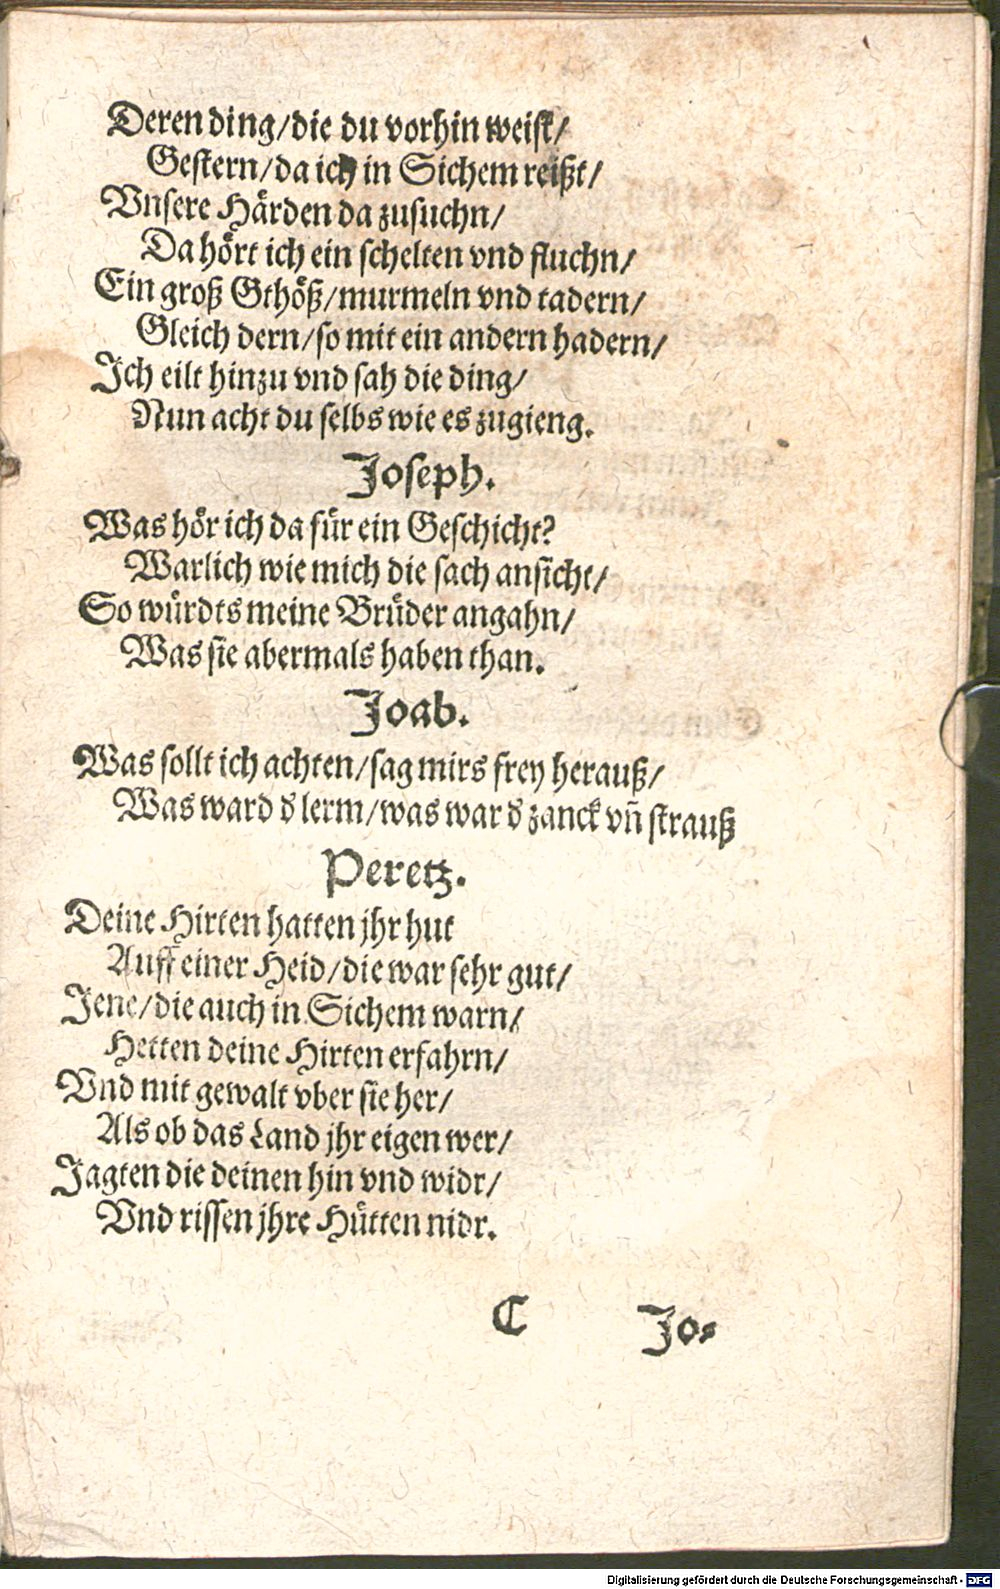 Deren ding/die du vorhin weist/
Gestern/da ich in Sichem reißt/
Vnsere Härden da zusuchn/
Da hört ich ein schelten vnd fluchn/
Ein groß Gthöß/murmeln vnd tadern/
Gleich dern/so mit ein andern hadern/
Ich eilt hinzu vnd sah die ding/
Nun acht du selbs wie es zugieng.
Joseph.
Was hör ich da für ein Geschicht?
Warlich wie mich die sach ansicht/
So würdts meine Brüder angahn/
Was sie abermals haben than.
Joab.
Was sollt ich achten/sag mirs frey herauß/
Was ward d lerm/was war d zanck vñ strauß
Peretz.
Deine Hirten hatten jhr hut
Auff einer Heid/die war sehr gut/
Jene/die auch in Sichem warn/
Hetten deine Hirten erfahrn/
Vnd mit gewalt vber sie her/
Als ob das Land jhr eigen wer/
Jagten die deinen hin vnd widr/
Vnd rissen jhre Hütten nidr.
C Jo-
Digitalisierung gefördert durch die Deutsche Forschungsgemeinschaft - DFG